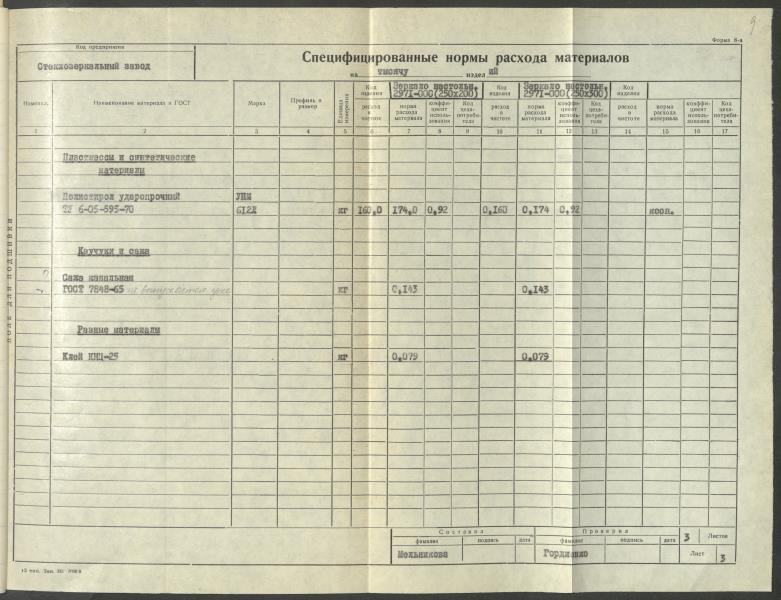 9
Форма 8-а
Код предприятия
Стеклозеркальный завод
Специфицированные нормы расхода материалов
на тысячу издел ий
Номенкл.
Наименование материала и ГОСТ
Марка
Профиль и размер
Единица измерения
Код изделия
Зеркало настольн. 2971-000(250х200)
Код изделия
Зеркало настольн. 2971-000(250х300)
Код изделия
расход в чистоте
норма расхода материала
коэффициент использования
Код цеха-потребителя
расход в чистоте
норма расхода материала
коэффициент использования
Код цеха-потребителя
расход в чистоте
норма расхода материала
коэффициент использования
Код цеха-потребителя
1 2 3 4 5 6 7 8 9 10 11 12 13 14 15 16 17
Пластмассы и синтетические
материалы
Полистирол ударопрочный УПМ
ТУ 6-05-595-70 612Л кг 160,0 174,0 0,92 0,160 0,174 0,92 исп.
Каучуки и сажа
Сажа канальная
ГОСТ 7848-65 не выпускается кг 0,143 0,143
Разные материалы
Клей КНЦ-25 кг 0,079 0,079
поле для подшивки
Составил
Проверил
3 Листов
фамилия подпись дата фамилия подпись дата
Мельникова Гордиенко
Лист 3